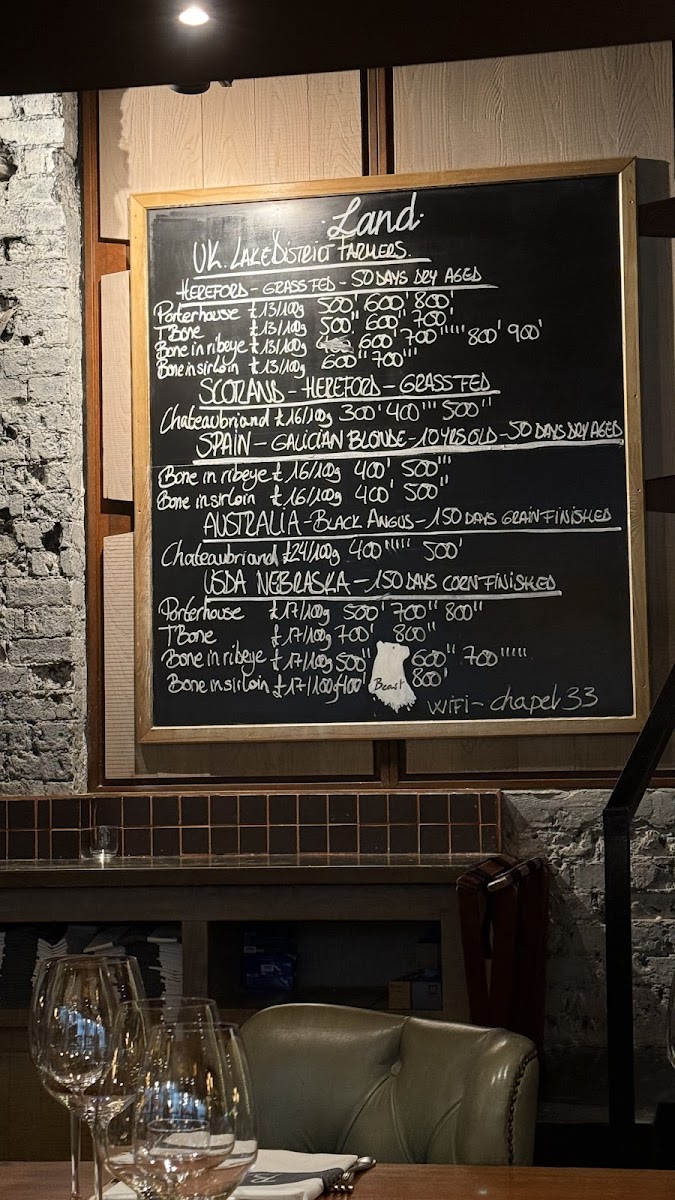 Land
UK. LAKE DISTRICT FARMERS.
HEREFORD - GRASS FED - 50 DAYS DRY AGED
Porterhouse £13/100g 500' 600' 800'
T Bone £13/100g 500'' 600'' 700'
Bone in ribeye £13/100g 600' 700''''' 800' 900'
Bone in sirloin £13/100g 600'' 700'''
SCOTLAND - HEREFORD - GRASS FED
Chateaubriand £16/100g 300' 400''' 500''
SPAIN - GALICIAN BLONDE - 10 YRS OLD - 50 DAYS DRY AGED
Bone in ribeye £16/100g 400' 500'''
Bone in sirloin £16/100g 400' 500''
AUSTRALIA - BLACK ANGUS - 150 DAYS GRAIN FINISHED
Chateaubriand £24/100g 400''''' 500'
USDA NEBRASKA - 150 DAYS CORN FINISHED
Porterhouse £17/100g 500' 700'' 800''
T Bone £17/100g 700' 800''
Bone in ribeye £17/100g 500'' 600'' 700'''''
Bone in sirloin £17/100g 400' 800'
Beast
WiFi - chapel 33